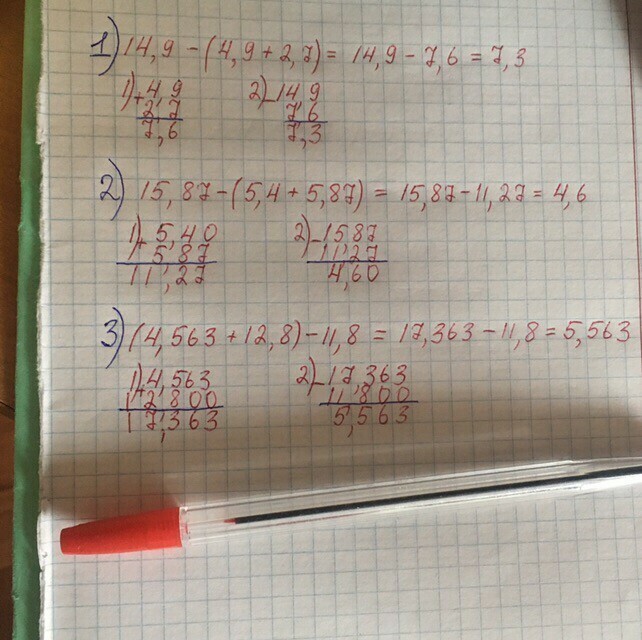 1) 14,9 - (4,9 + 2,7) = 14,9 - 7,6 = 7,3
1) + 4,9 2) - 14,9
2,7 7,6
7,6 7,3
2) 15,87 - (5,4 + 5,87) = 15,87 - 11,27 = 4,6
1) + 5,40 2) - 15,87
5,87 11,27
11,27 4,60
3) (4,563 + 12,8) - 11,8 = 17,363 - 11,8 = 5,563
1) + 4,563 2) - 17,363
12,800 11,800
17,363 5,563